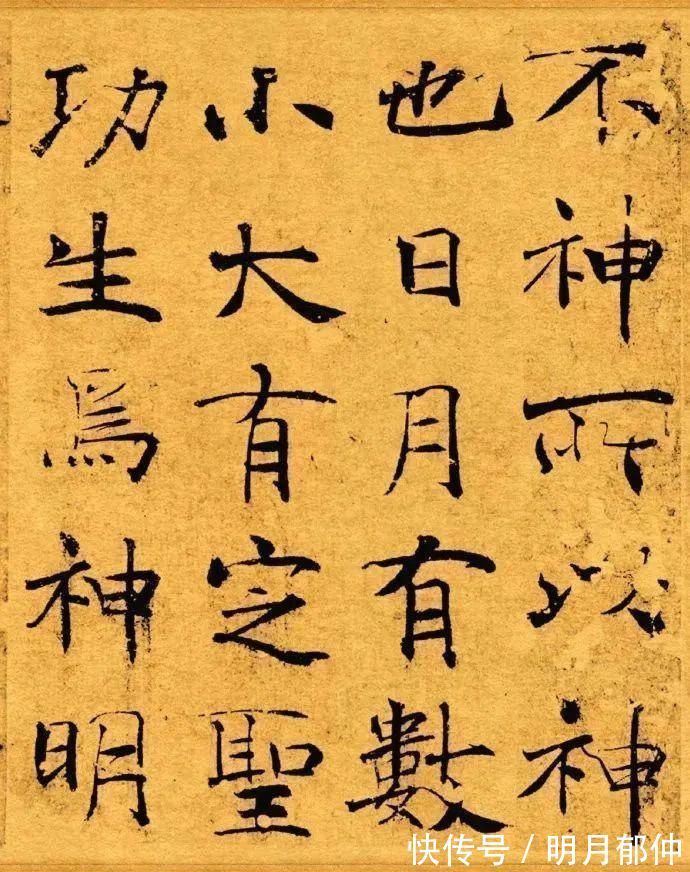 不神所以神
也日月有數
小大有定聖
功生焉神明
快传号/明月郁仲